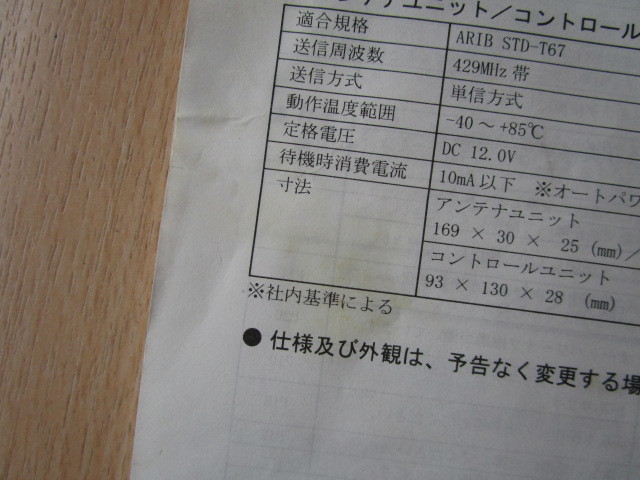 ンテナユニット／コントロール
適合規格 ARIB STD-T67
送信周波数 429MHz帯
送信方式 単信方式
動作温度範囲 -40～+85℃
定格電圧 DC 12.0V
待機時消費電流 10mA以下 ※オートパワ
寸法 アンテナユニット
169 × 30 × 25 (mm)／
コントロールユニット
93 × 130 × 28 (mm)
※社内基準による
● 仕様及び外観は、予告なく変更する場